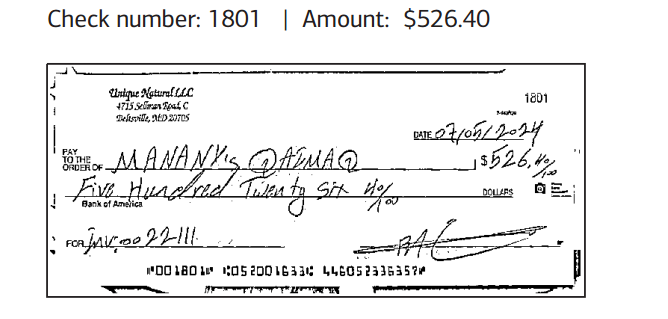 Check number: 1801 | Amount: $526.40
Unique Natural LLC
4715 Sellman Road, C
Beltsville, MD 20705
1801
DATE 07/05/2024
PAY
TO THE
ORDER OF MANANY's @ $526.40/100
Five Hundred Twenty Six 40/100 DOLLARS
Bank of America
FOR Inv:0022111
⑈001801⑈ ⑆052001633⑆ 446052336357⑈